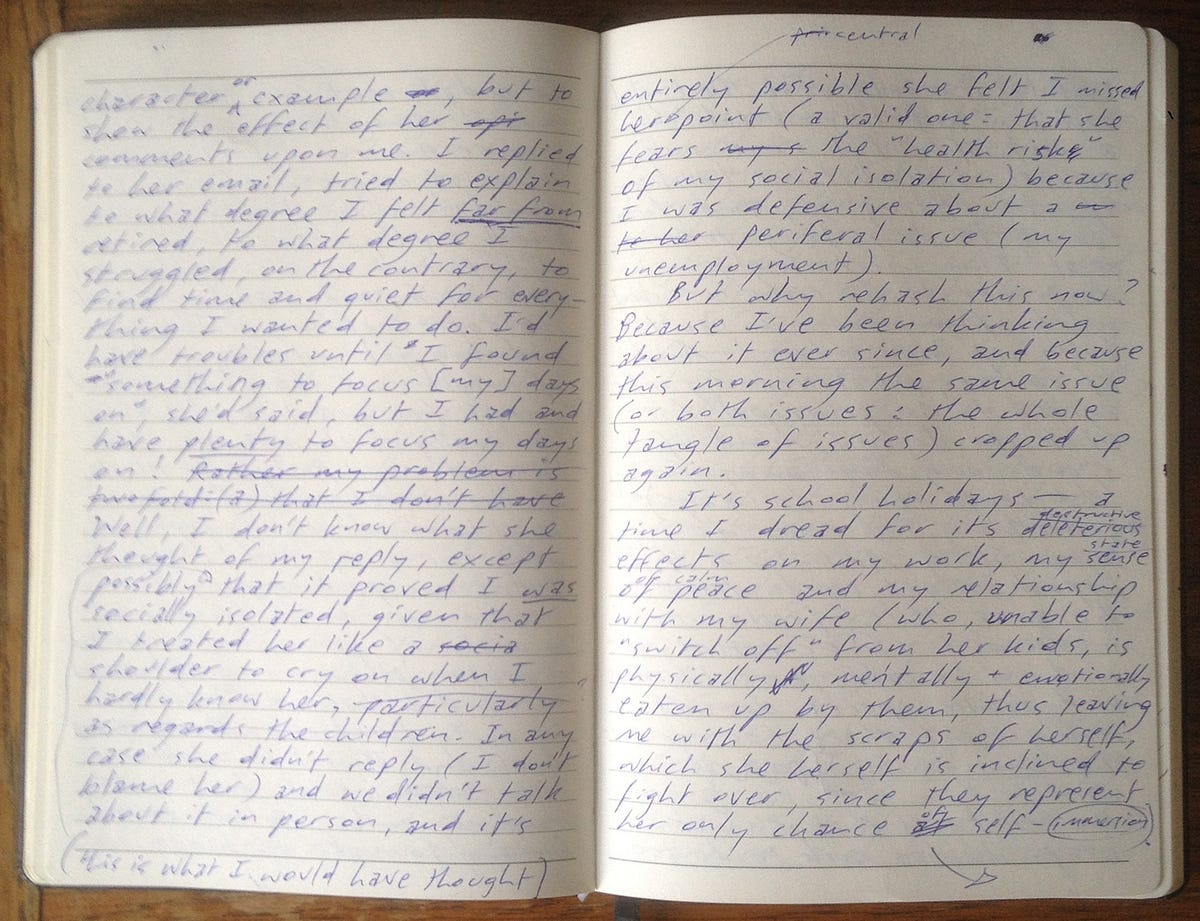 or
character ^ example, but to
show the effect of her opi
comments upon me. I replied
to her email, tried to explain
to what degree I felt far from
retired, to what degree I
struggled, on the contrary, to
find time and quiet for every-
thing I wanted to do. I'd
have troubles until I found
"something to focus [my] days
on", she'd said, but I had and
have plenty to focus my days
on! Rather my problem is
twofold: (a) that I don't have
Well, I don't know what she
thought of my reply except
possibly that it proved I was
socially isolated, given that
I treated her like a socia
shoulder to cry on when I
hardly know her, particularly ?
as regards the children. In any
case she didn't reply (I don't
blame her) and we didn't talk
about it in person, and it's
(this is what I would have thought)
central
entirely possible she felt I missed
her point (a valid one: that she
fears my s the "health risks"
of my social isolation) because
I was defensive about a
to her periferal issue (my
unemployment).
But why rehash this now?
Because I've been thinking
about it ever since, and because
this morning the same issue
(or both issues: the whole
tangle of issues) cropped up
again.
It's school holidays — a
destructive
time I dread for its deleterious
state
effects on my work, my sense
of calm
of peace and my relationship
with my wife (who, unable to
"switch off" from her kids, is
physically, mentally + emotionally
eaten up by them, thus leaving
me with the scraps of herself,
which she herself is inclined to
fight over, since they represent
of
her only chance at self-immersion).